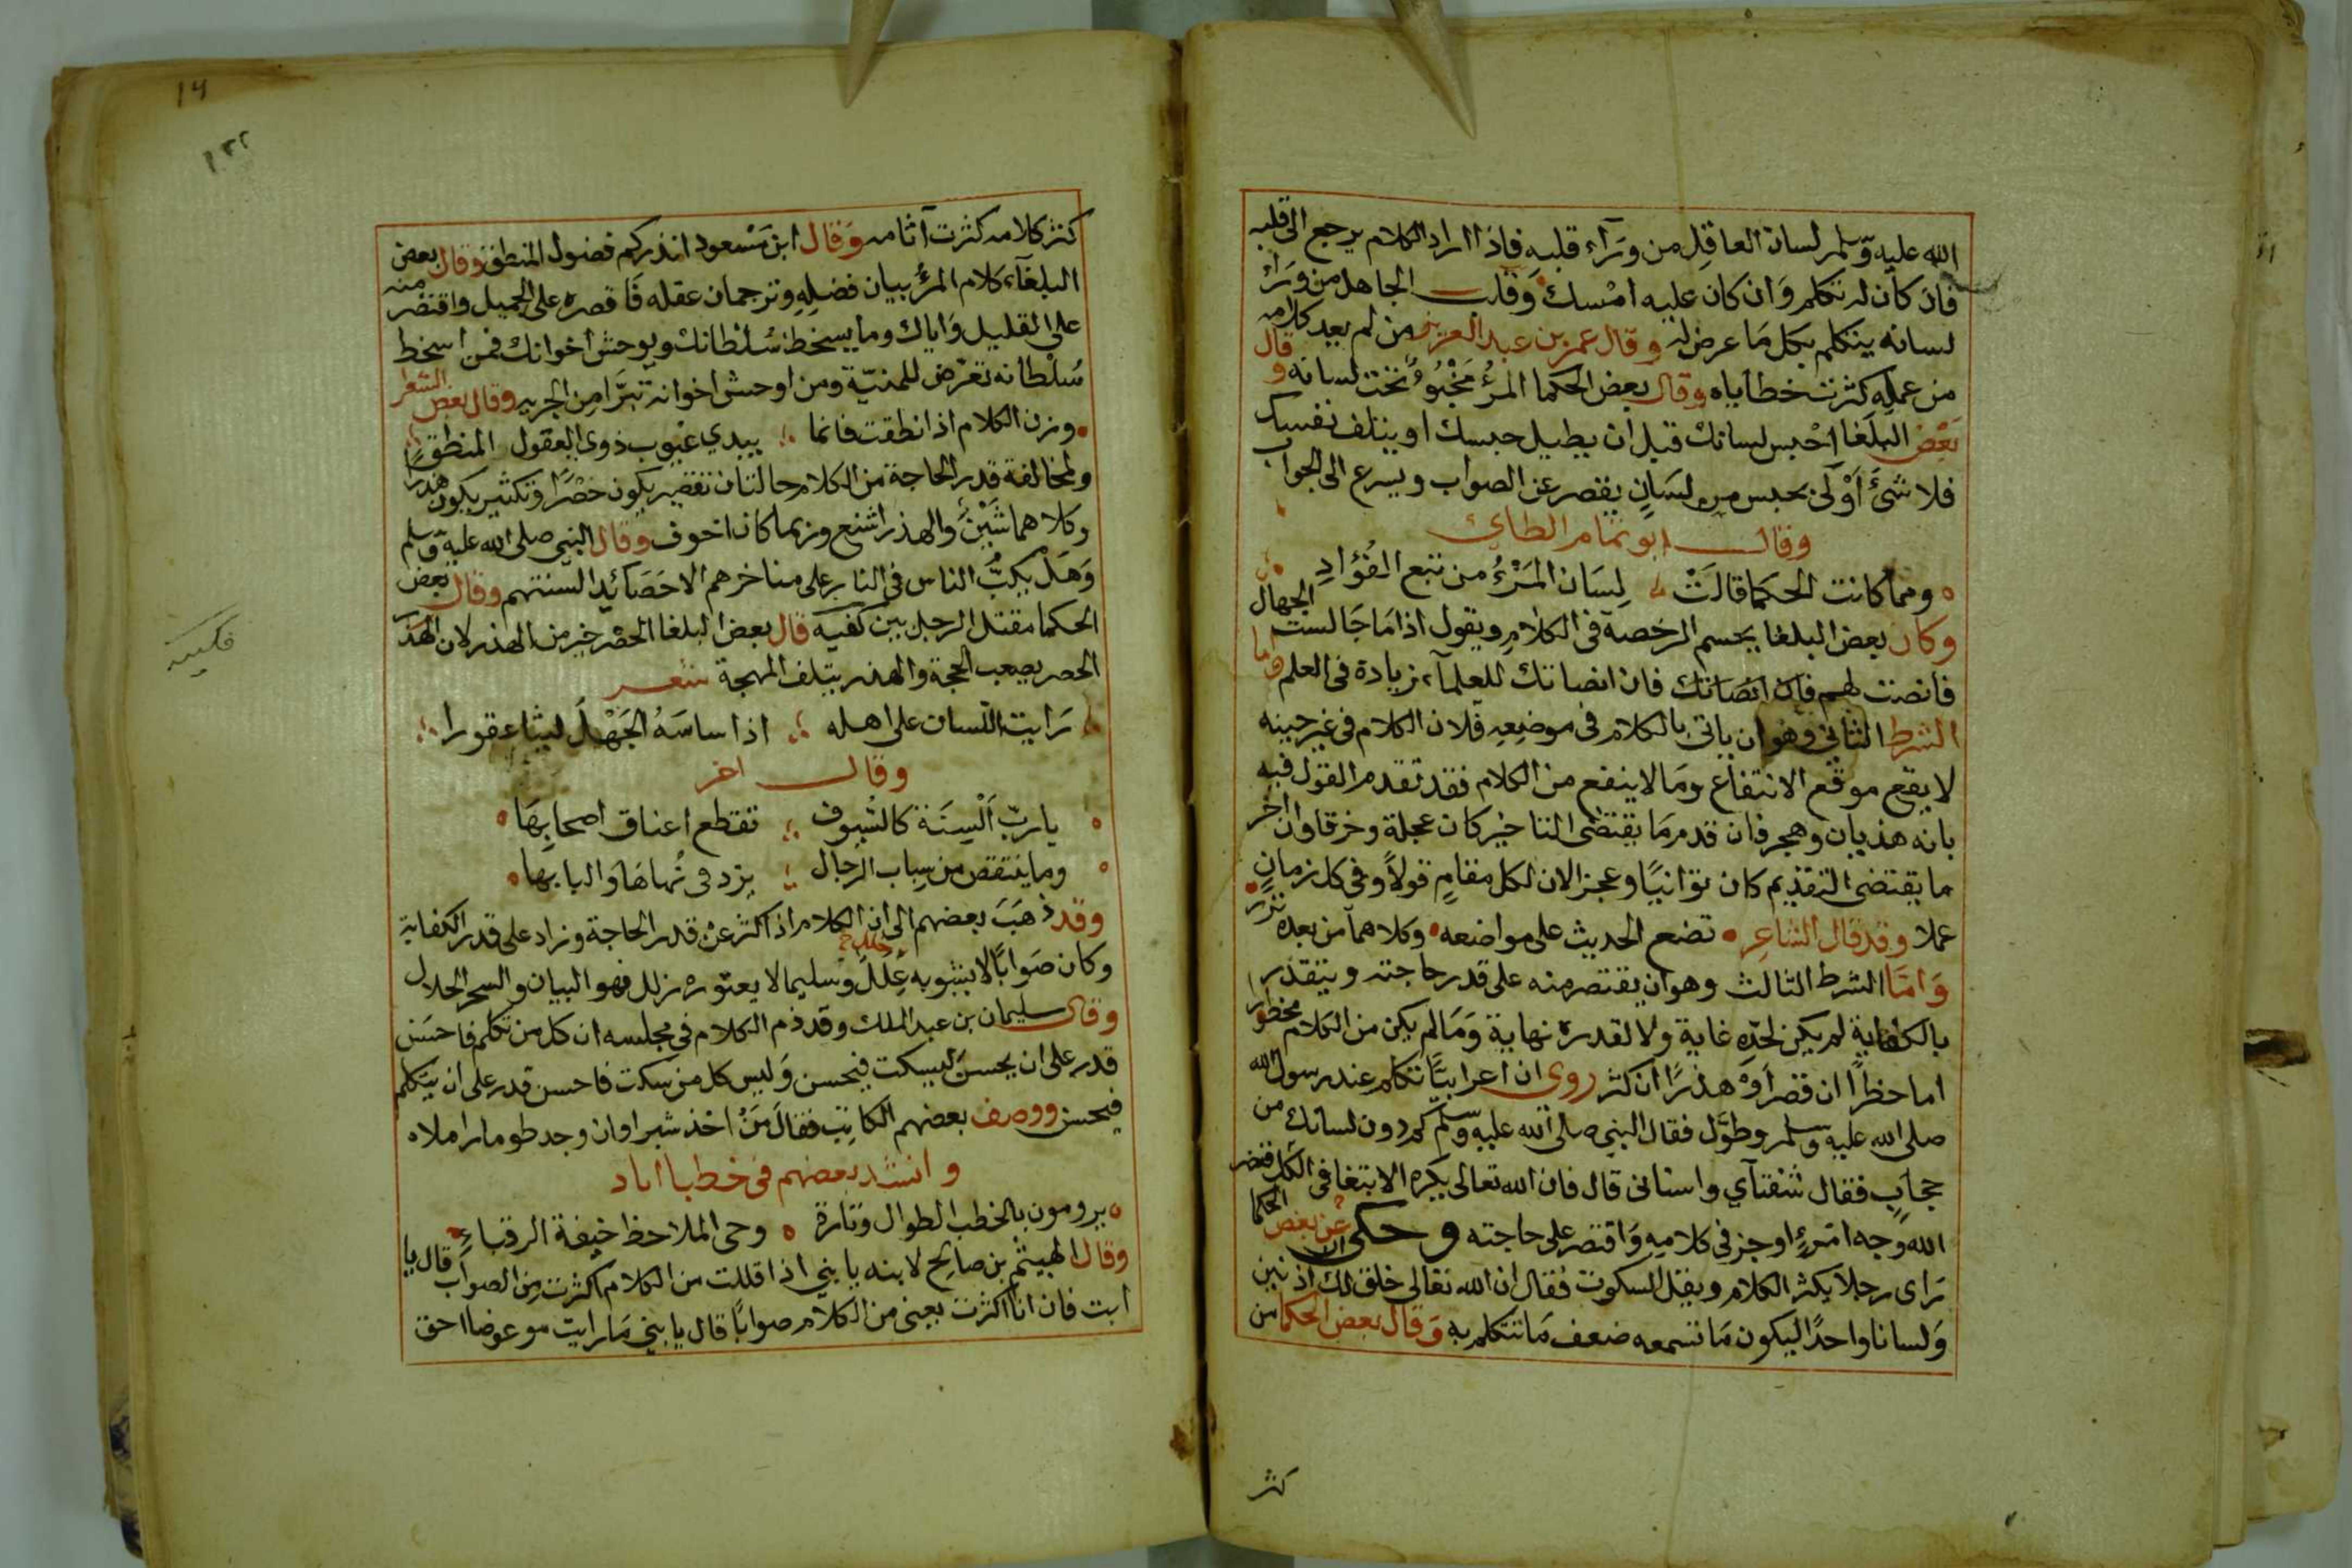 الله عليه وسلم لسان العاقل من ورآء قلبه فاذا اراد الكلام يرجع الى قلبه
فان كان له تكلم وان كان عليه امسك وقلب الجاهل من ورآء
لسانه يتكلم بكل ما عرض له وقال عمر بن عبد العزيز من لم يعد كلامه
من عمله كثرت خطاياه وقال بعض الحكما المرؤ مخبؤ تحت لسانه وقال
بعض البلغا احبس لسانك قبل ان يطيل حبسك او يتلف نفسك
فلا شئ أولى بحبس من لسان يقصر عن الصواب ويسرع الى الجواب
وقال ابو تمام الطاي
ومما كانت الحكما قالت لسان المرؤ من تبع الفؤاد
وكان بعض البلغا يحسم الرخصة فى الكلام ويقول اذا ما جالست الجهال
فانصت لهم فان انصاتك فان انصاتك للعلمآء زيادة فى العلم واما
الشرط الثانى فهو ان ياتى بالكلام فى موضعه فلان الكلام فى غير حينه
لا يقع موقع الانتفاع وما لا ينفع من الكلام فقد تقدم القول فيه
بانه هذيان وهجر فان قدم ما يقتضى التاخير كان عجلة وخرقا وان اخر
ما يقتضى التقديم كان توانيا وعجزا لان لكل مقام قولا وفى كل زمان
عملا وقد قال الشاعر تضع الحديث على مواضعه وكلاهما من بعده نزر
وامّا الشرط الثالث وهو ان يقتصر منه على قدر حاجته ويتقدر
بالكفاية لم يكن لحدّه غاية ولا لقدره نهاية وما لم يكن من الكلام محظورا
اما حظرا ان قصر أو هذرا ان كثر روى ان اعرابيا تكلم عند رسول الله
صلى الله عليه وسلم وطوّل فقال النبى صلى الله عليه وسلم كم دون لسانك من
حجاب فقال شفتآي واسنانى قال فان الله تعالى يكره الابتغا فى الكلام فنضر
الله وجه امرءٍ اوجز فى كلامه واقتصر على حاجته وحكى عن بعض الحكما
راى رجلا يكثر الكلام ويقل السكوت فقال ان الله تعالى خلق لك اذنين
ولسانا واحدًا ليكون ما تسمعه ضعف ما تتكلم به وقال بعض الحكما من
كثر
14
كثر كلامه كثرت آثامه وقال ابن مسعود انذركم فضول المنطق وقال بعض
البلغآء كلام المرؤ بيان فضله وترجمان عقله فاقصره على الجميل واقتصر منه
على القليل واياك وما يسخط سلطانك ويوحش اخوانك فمن اسخط
سلطانه تعرّض للمنيّة ومن اوحش اخوانه تبرّا من الحريه وقال بعض الشعرا
وزن الكلام اذا نطقت فانما يبدي عيوب ذوى العقول المنطق
ولمخالفة قدر الحاجة من الكلام حالتان تقصير يكون حصرًا وتكثير يكون هذرا
وكلاهما شين والهذر اشنع وربما كان اخوف وقال النبي صلى الله عليه وسلم
وهل يكبّ الناس فى النار على مناخرهم الا حصائد السنتهم وقال بعض
الحكما مقتل الرجل بين كفيه قال بعض البلغا الحصر خير من الهذر لان الهذر
الحصر يصعب الحجة والهذر يتلف المهجة شعر
رايت اللسان على اهله اذا ساسه الجهل ليثا عقورا
وقال اخر
يا ربّ ألسنة كالسُيوف تقطع اعناق اصحابها
وما ينتقص من سباب الرجال يزد فى نُهاها والبابها
وقد ذهب بعضهم الى ان الكلام اذا كثر عن قدر الحاجة وزاد على قدر الكفاية
وكان صوابًا لا يشوبه عِلل خلل وسليما لا يعتوره زلل فهو البيان والسحر الحلال
وقال سليمان بن عبد الملك وقد ذم الكلام فى مجلسه ان كل من تكلم فاحسن
قدر على ان يحسن ليسكت فيحسن وليس كل من سكت فاحسن قدر على ان يتكلم
فيحسن ووصف بعضهم الكاتب فقال من اخذ شبرا وان وجد طومارا ملاه
وانشد بعضهم فى خطبا اياد
يرومون بالخطب الطوال وتارة وحى الملاحظ خيفة الرقباءِ
وقال الهيثم بن صالح لابنه يا بنى اذا اقللت من الكلام اكثرت من الصواب قال يا
ابت فان انا اكثرت يعنى من الكلام صوابًا قال يا بنى ما رايت موعوضا احق